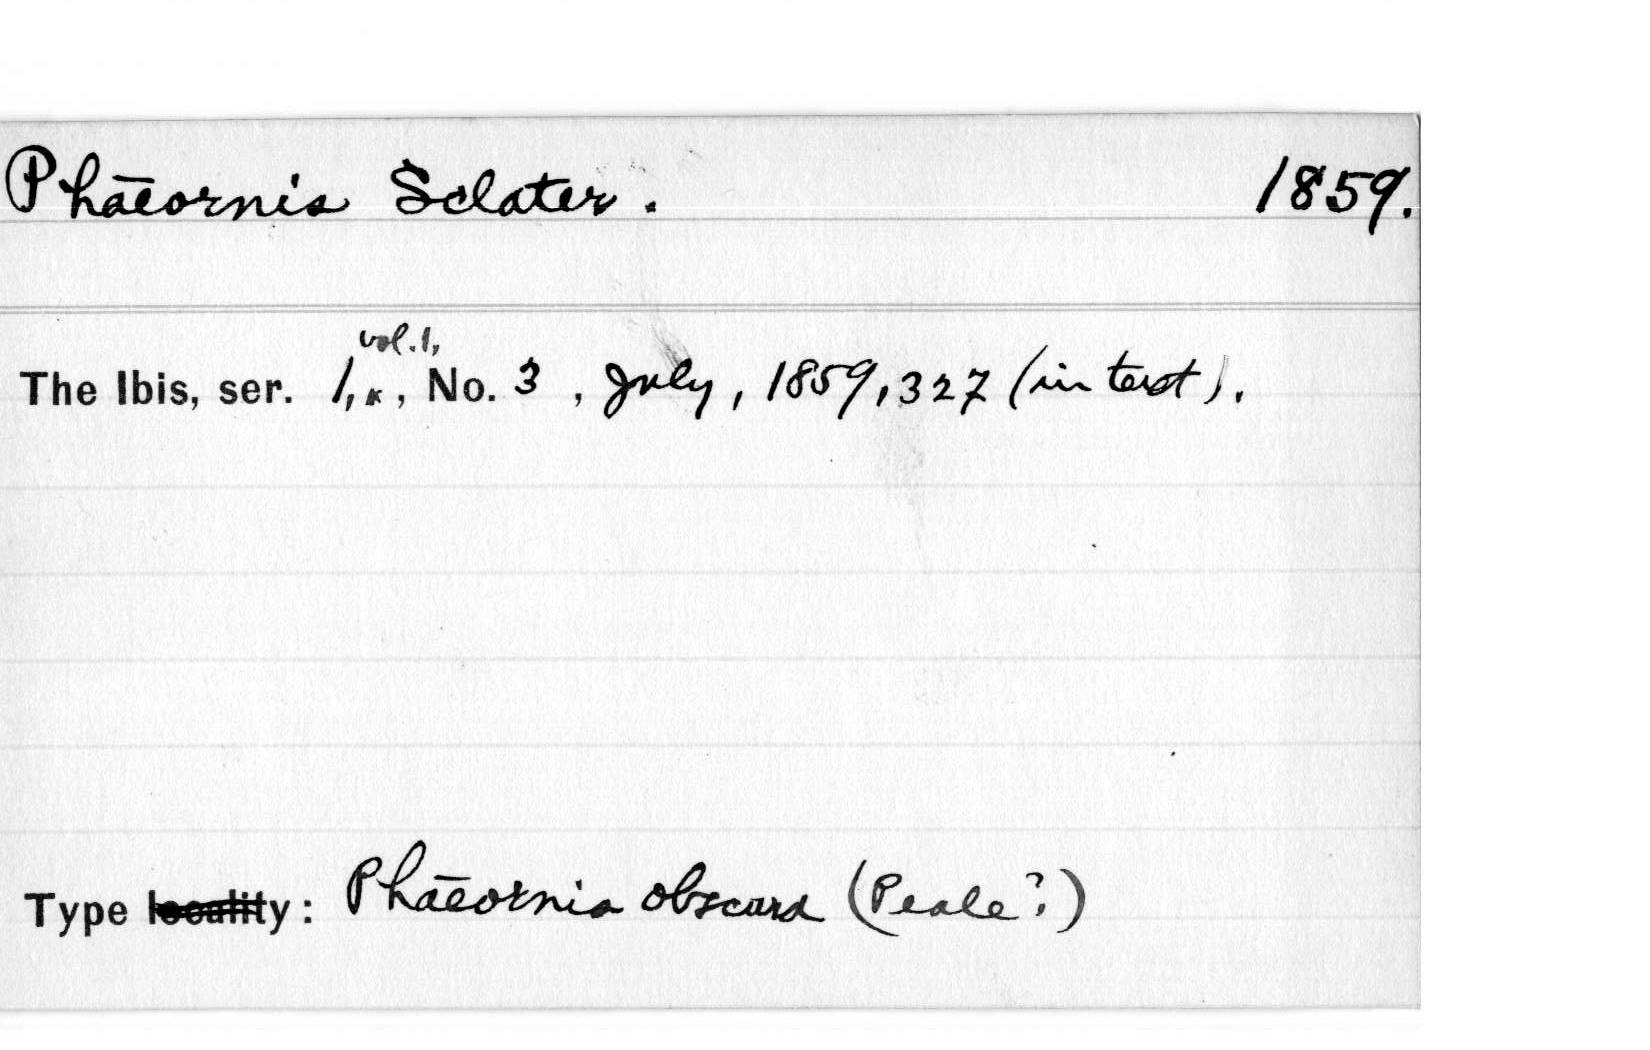 Phaeornis Sclater. 1859.
vol. 1,
The Ibis, ser. 1, , No. 3 , July, 1859, 327 (in text).
Type locality: Phaeornis obscura (Peale?)